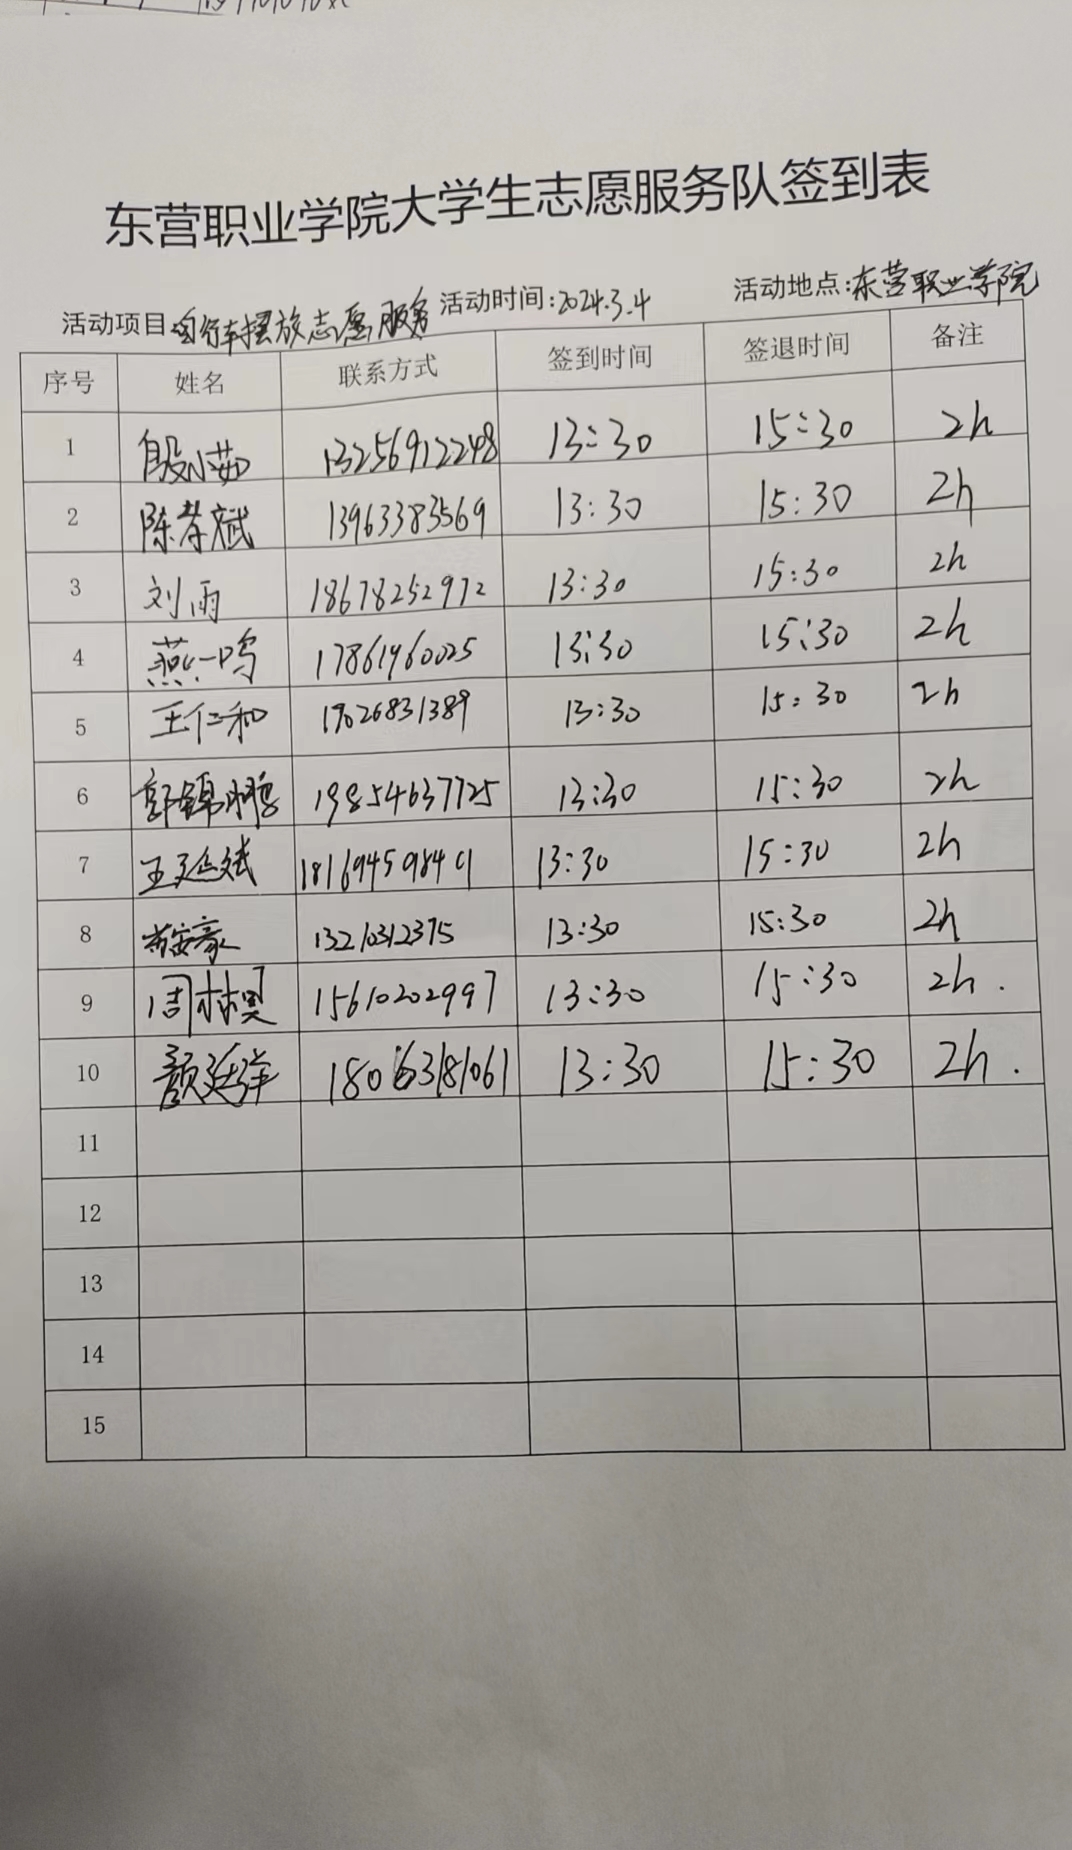 东营职业学院大学生志愿服务队签到表
活动项目:自行车摆放志愿服务 活动时间:2024.3.4 活动地点:东营职业学院
序号 姓名 联系方式 签到时间 签退时间 备注
1 殷小茹 13256912248 13:30 15:30 2h
2 陈孝斌 13963383569 13:30 15:30 2h
3 刘雨 18678252972 13:30 15:30 2h
4 燕一鸣 17861960025 13:30 15:30 2h
5 王仁和 17026831389 13:30 15:30 2h
6 郭锦鹏 19854637725 13:30 15:30 2h
7 王延斌 18169459849 13:30 15:30 2h
8 13210312375 13:30 15:30 2h
9 周林昊 15610202997 13:30 15:30 2h.
10 颜廷洋 18063181061 13:30 15:30 2h.
11
12
13
14
15